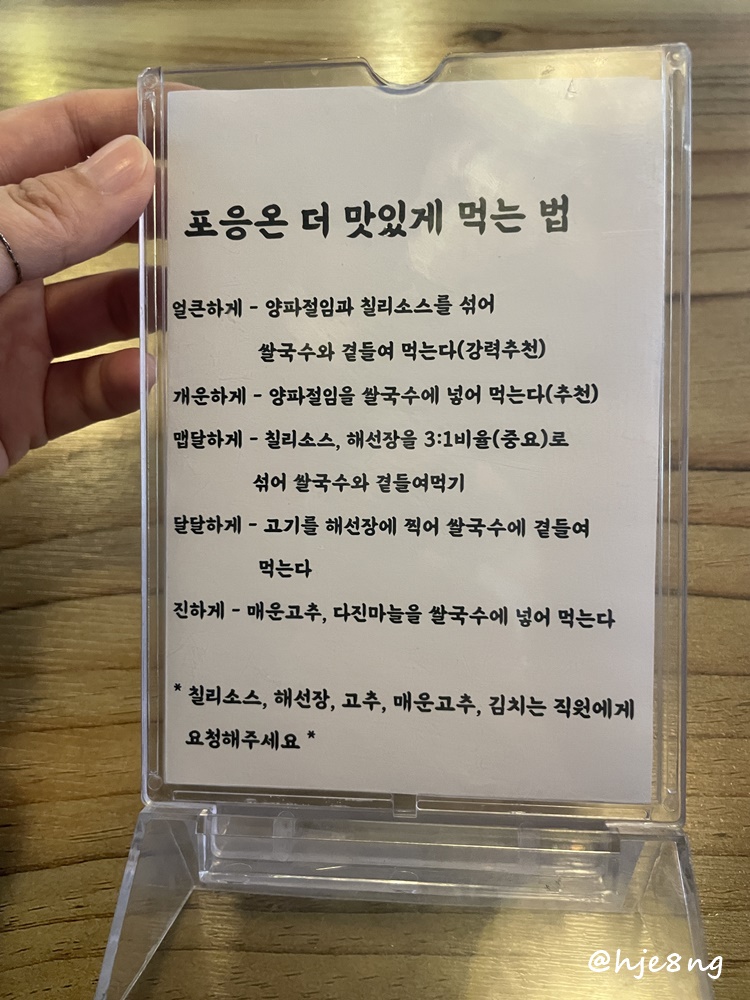 포응온 더 맛있게 먹는 법
얼큰하게 - 양파절임과 칠리소스를 섞어
쌀국수와 곁들여 먹는다(강력추천)
개운하게 - 양파절임을 쌀국수에 넣어 먹는다(추천)
맵달하게 - 칠리소스, 해선장을 3:1비율(중요)로
섞어 쌀국수와 곁들여먹기
달달하게 - 고기를 해선장에 찍어 쌀국수에 곁들여
먹는다
진하게 - 매운고추, 다진마늘을 쌀국수에 넣어 먹는다
* 칠리소스, 해선장, 고추, 매운고추, 김치는 직원에게
요청해주세요 *
@hje8ng